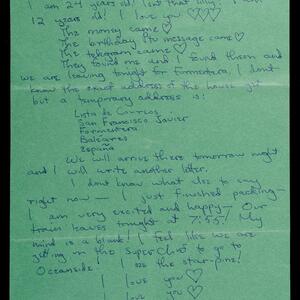 I am 24 years old! Isn't that silly? I am
12 years old! I love you ♡♡♡
The money came ♡
The birthday tv message came ♡
The telegram came ♡
They found me and I found them and
we are leaving tonight for Formentera. I don't
know the exact address of the house yet
but a temporary address is:
Lista de Correos
San Francisco Javier
Formentera
Baleares
España
We will arrive there tomorrow night
and I will write another letter.
I don't know what else to say
right now — I just finished packing —
I am very excited and happy — Our
train leaves tonight at 7:55! My
mind is a blank! I feel like we are
getting on the SuperChief to go to
Oceanside! I see the star-pine!
I love you ♡
I love you ♡